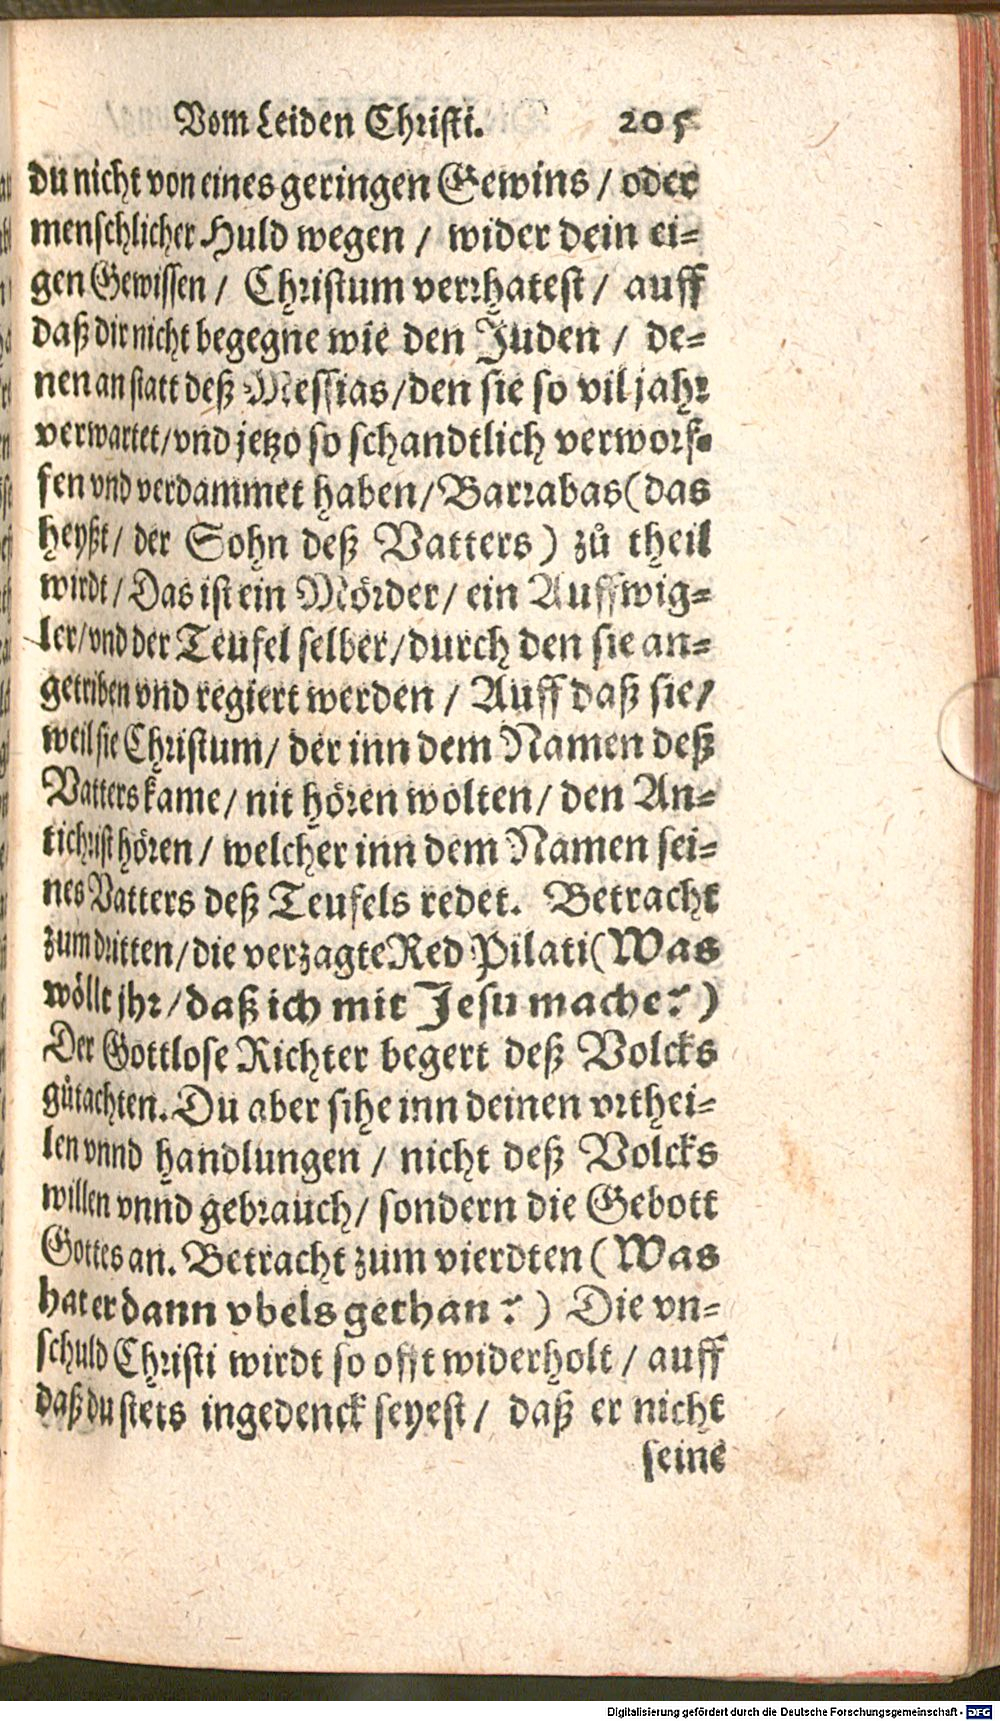 Vom Leiden Christi. 205
du nicht von eines geringen Gewins / oder
menschlicher Huld wegen / wider dein ei=
gen Gewissen / Christum verrhatest / auff
daß dir nicht begegne wie den Juden / de=
nen an statt deß Messias / den sie so vil jahr
verwartet / vnd jetzo so schandtlich verworf=
fen vnd verdammet haben / Barrabas (das
heyßt / der Sohn deß Vatters) zů theil
wirdt / Das ist ein Mörder / ein Auffwig=
ler / vnd der Teufel selber / durch den sie an=
getriben vnd regiert werden / Auff daß sie /
weil sie Christum / der inn dem Namen deß
Vatters kame / nit hören wolten / den An=
tichrist hören / welcher inn dem Namen sei=
nes Vatters deß Teufels redet. Betracht
zum dritten / die verzagte Red Pilati (Was
wöllt jhr / daß ich mit Jesu mache?)
Der Gottlose Richter begert deß Volcks
gůtachten. Du aber sihe inn deinen vrthei=
len vnnd handlungen / nicht deß Volcks
willen vnnd gebrauch / sondern die Gebott
Gottes an. Betracht zum vierdten (Was
hat er dann vbels gethan?) Die vn=
schuld Christi wirdt so offt widerholt / auff
daß du stets ingedenck seyest / daß er nicht
seine
Digitalisierung gefördert durch die Deutsche Forschungsgemeinschaft - DFG